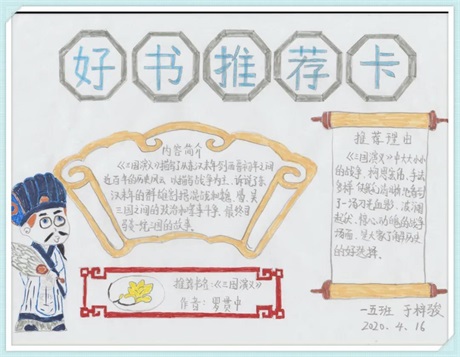 好书推荐卡
内容简介
《三国演义》描写了从东汉末年到西晋初年之间
近百年的历史风云，以描写战争为主，诉说了东
汉末年的群雄割据混战和魏、蜀、吴
三国之间的政治和军事斗争，最终司
马炎一统三国的故事。
推荐书名：《三国演义》
作者：罗贯中
推荐理由
《三国演义》中大大小小
的战争，构思宏伟，手法
多样，使我们清晰地看到
了一场场刀光血影，波澜
起伏、惊心动魄的战争
场面，是人家了解历史
的好选择。
一五班 于梓骏
2020.4.16